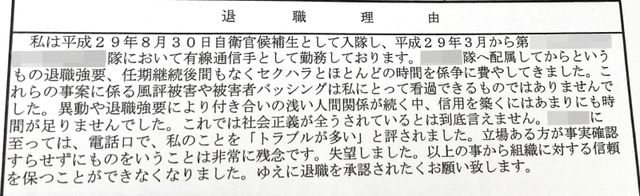 退職理由
私は平成29年8月30日自衛官候補生として入隊し、平成29年3月から第
隊において有線通信手として勤務しております。隊へ配属してからという
もの退職強要、任期継続後間もなくセクハラとほとんどの時間を係争に費やしてきました。こ
れらの事案に係る風評被害や被害者バッシングは私にとって看過できるものではありませんで
した。異動や退職強要により付き合いの浅い人間関係が続く中、信用を築くにはあまりにも時
間が足りませんでした。これでは社会正義が全うされているとは到底言えません。事実に
至っては、電話口で、私のことを「トラブルが多い」と評されました。立場ある方が事実確認
すらせずにものをいうことは非常に残念です。失望しました。以上の事から組織に対する信頼
を保つことができなくなりました。ゆえに退職を承認されたくお願い致します。